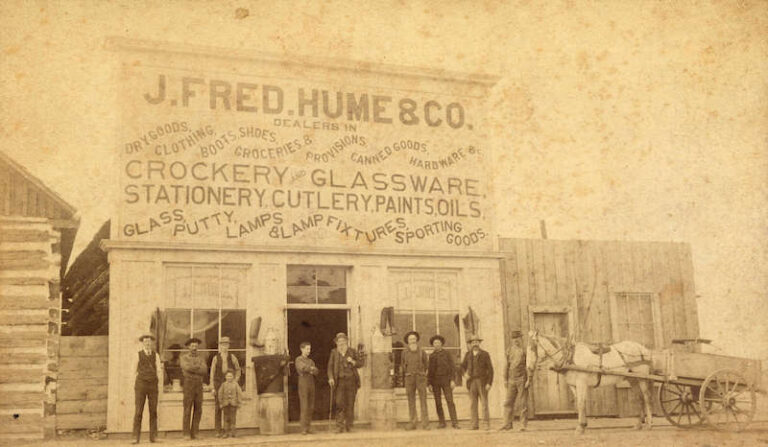 J. FRED. HUME & CO.
DEALERS IN
DRY GOODS, CLOTHING, BOOTS, SHOES, GROCERIES & PROVISIONS, CANNED GOODS, HARDWARE &c
CROCKERY AND GLASSWARE,
STATIONERY, CUTLERY, PAINTS, OILS,
GLASS, PUTTY, LAMPS & LAMP FIXTURES, SPORTING GOODS.